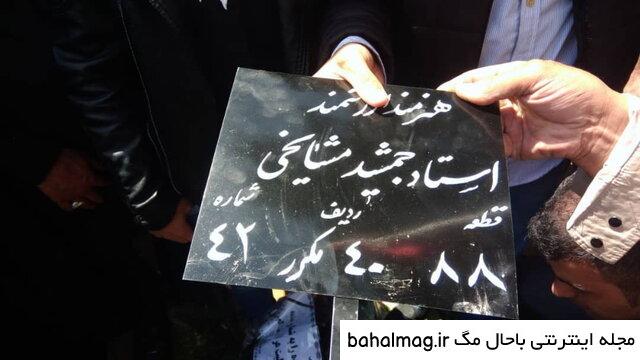 هنرمند ارزشمند
استاد جمشید مشایخی
قطعه ردیف شماره
۸۸ ۴۰ مکرر ۴۲
مجله اینترنتی باحال مگ bahalmag.ir